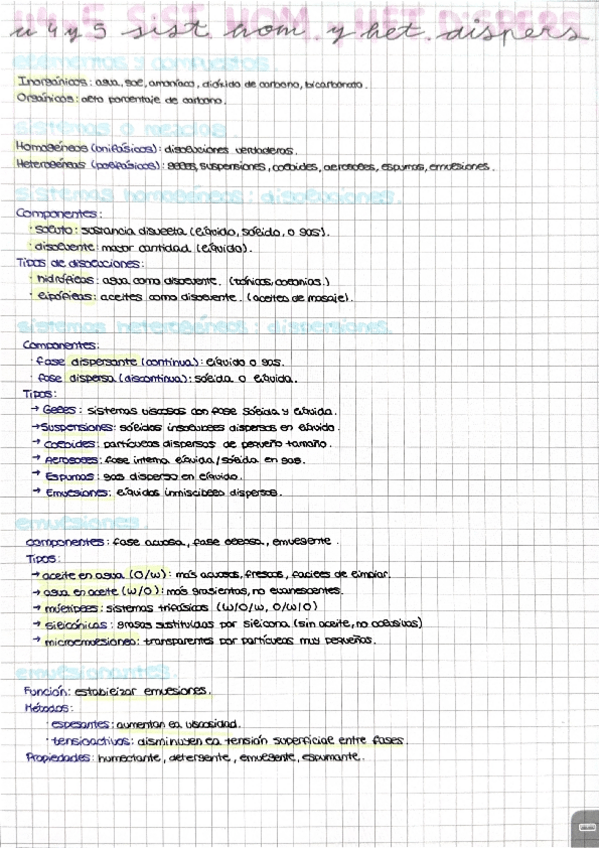 u 4 y 5 sist. hom. y het. dispers
elementos y compuestos
Inorgánicos: agua, sal, amoníaco, dióxido de carbono, bicarbonato.
Orgánicos: alto porcentaje de carbono.
sistemas o mezclas
Homogéneos (unifásicos): disoluciones verdaderas.
Heterogéneas (polifásicos): geles, suspensiones, coloides, aerosoles, espumas, emulsiones.
sistemas homogéneos: disoluciones.
Componentes:
· soluto: sustancia disuelta (líquido, sólido, o gas).
· disolvente: mayor cantidad (líquido).
Tipos de disoluciones:
· hidrófilas: agua como disolvente. (tónicos, colonias.)
· lipófilas: aceites como disolvente. (aceites de masaje).
sistemas heterogéneos: dispersiones.
Componentes:
· fase dispersante (continua): líquido o gas.
· fase dispersa (discontinua): sólida o líquida.
Tipos:
→ Geles: sistemas viscosos con fase sólida y líquida.
→ Suspensiones: sólidos insolubles dispersos en líquido.
→ Coloides: partículas dispersas de pequeño tamaño.
→ Aerosoles: fase interna líquida/sólida en gas.
→ Espumas: gas disperso en líquido.
→ Emulsiones: líquidos inmiscibles dispersos.
emulsiones.
componentes: fase acuosa, fase oleosa, emulgente.
Tipos:
→ aceite en agua (O/W): más acuosas, frescas, fáciles de limpiar.
→ agua en aceite (W/O): más grasientas, no evanescentes.
→ múltiples: sistemas trifásicos (W/O/W, O/W/O)
→ silicónicas: grasas sustituidas por silicona (sin aceite, no oclusivas)
→ microemulsiones: transparentes por partículas muy pequeñas.
emulsionantes.
Función: estabilizar emulsiones.
Métodos:
· espesantes: aumentan la viscosidad.
· tensioactivos: disminuyen la tensión superficial entre fases.
Propiedades: humectante, detergente, emulgente, espumante.